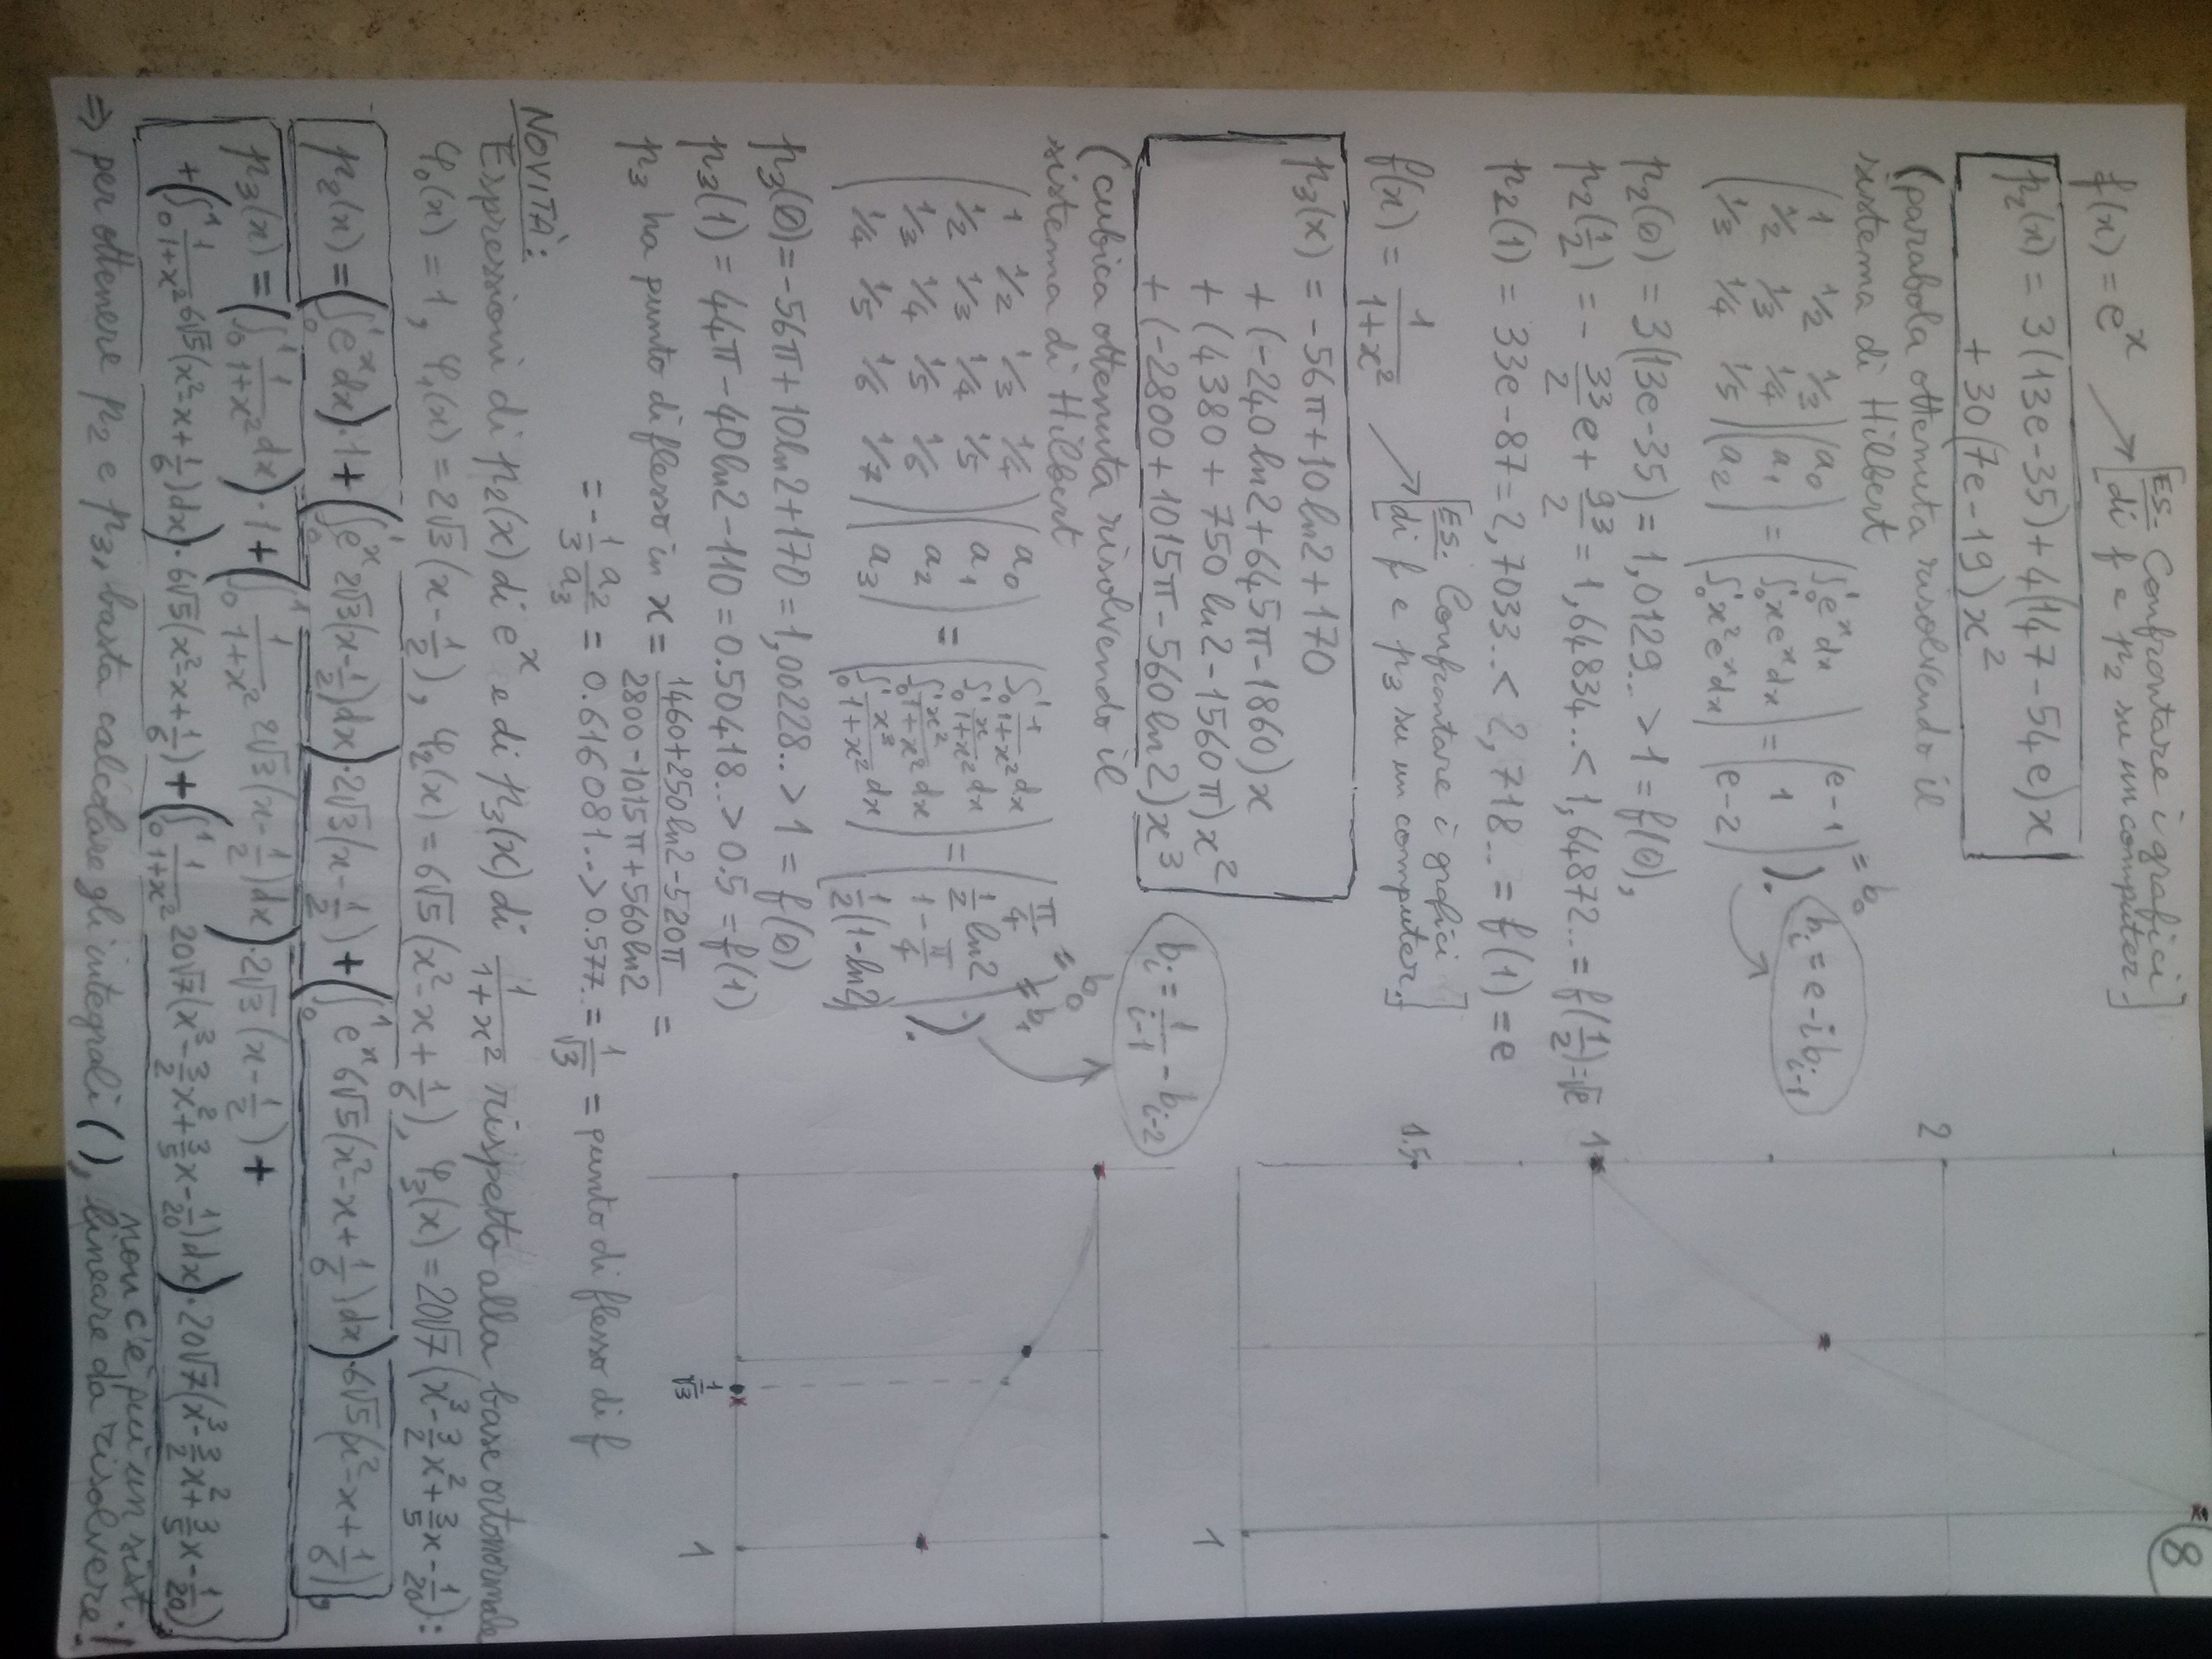 8
f(x) = e^x → [ES. Confrontare i grafici
di f e p₂ su un computer]
p₂(x) = 3(13e-35) + 4(147-54e)x
+ 30(7e-19)x²
(parabola ottenuta risolvendo il
sistema di Hilbert
(1 1/2 1/3) (a₀) = (∫₀¹ e^x dx) = (e-1) = b₀
(1/2 1/3 1/4) (a₁) = (∫₀¹ x e^x dx) = (1)
(1/3 1/4 1/5) (a₂) = (∫₀¹ x² e^x dx) = (e-2) ).
bᵢ = e - i bᵢ₋₁
p₂(0) = 3(13e-35) = 1,0129.. > 1 = f(0),
p₂(1/2) = -33/2 e + 93/2 = 1,64834.. < 1,64872.. = f(1/2) = √e
p₂(1) = 33e-87 = 2,7033.. < 2,718.. = f(1) = e
2
1.5
1
1
f(x) = 1/(1+x²) → [ES. Confrontare i grafici
di f e p₃ su un computer.]
p₃(x) = -56π + 10 ln2 + 170
+ (-240 ln2 + 645π - 1860)x
+ (4380 + 750 ln2 - 1560π)x²
+ (-2800 + 1015π - 560 ln2)x³
(cubica ottenuta risolvendo il
sistema di Hilbert
bᵢ = 1/(i-1) - bᵢ₋₂
(1 1/2 1/3 1/4) (a₀) = (∫₀¹ 1/(1+x²) dx) = (π/4) = b₀
(1/2 1/3 1/4 1/5) (a₁) = (∫₀¹ x/(1+x²) dx) = (1/2 ln2) = b₁
(1/3 1/4 1/5 1/6) (a₂) = (∫₀¹ x²/(1+x²) dx) = (1-π/4)
(1/4 1/5 1/6 1/7) (a₃) = (∫₀¹ x³/(1+x²) dx) = (1/2(1-ln2)) ).
p₃(0) = -56π + 10 ln2 + 170 = 1,00228.. > 1 = f(0)
p₃(1) = 44π - 40 ln2 - 110 = 0.50418.. > 0.5 = f(1)
p₃ ha punto di flesso in x = (1460 + 250 ln2 - 520π)/(2800 - 1015π + 560 ln2) =
= -1/3 a₂/a₃ = 0.616081.. > 0.577.. = 1/√3 = punto di flesso di f
1/√3
1
NOVITÀ:
Espressioni di p₂(x) di e^x e di p₃(x) di 1/(1+x²) rispetto alla base ortonormale
φ₀(x) = 1, φ₁(x) = 2√3(x-1/2), φ₂(x) = 6√5(x²-x+1/6), φ₃(x) = 20√7(x³-3/2x²+3/5x-1/20):
p₂(x) = (∫₀¹ e^x dx)·1 + (∫₀¹ e^x 2√3(x-1/2)dx)·2√3(x-1/2) + (∫₀¹ e^x 6√5(x²-x+1/6)dx)·6√5(x²-x+1/6),
p₃(x) = (∫₀¹ 1/(1+x²) dx)·1 + (∫₀¹ 1/(1+x²) 2√3(x-1/2)dx)·2√3(x-1/2) +
+ (∫₀¹ 1/(1+x²) 6√5(x²-x+1/6)dx)·6√5(x²-x+1/6) + (∫₀¹ 1/(1+x²) 20√7(x³-3/2x²+3/5x-1/20)dx)·20√7(x³-3/2x²+3/5x-1/20)
⇒ per ottenere p₂ e p₃, basta calcolare gli integrali ( ), non c'è più un sist. lineare da risolvere!